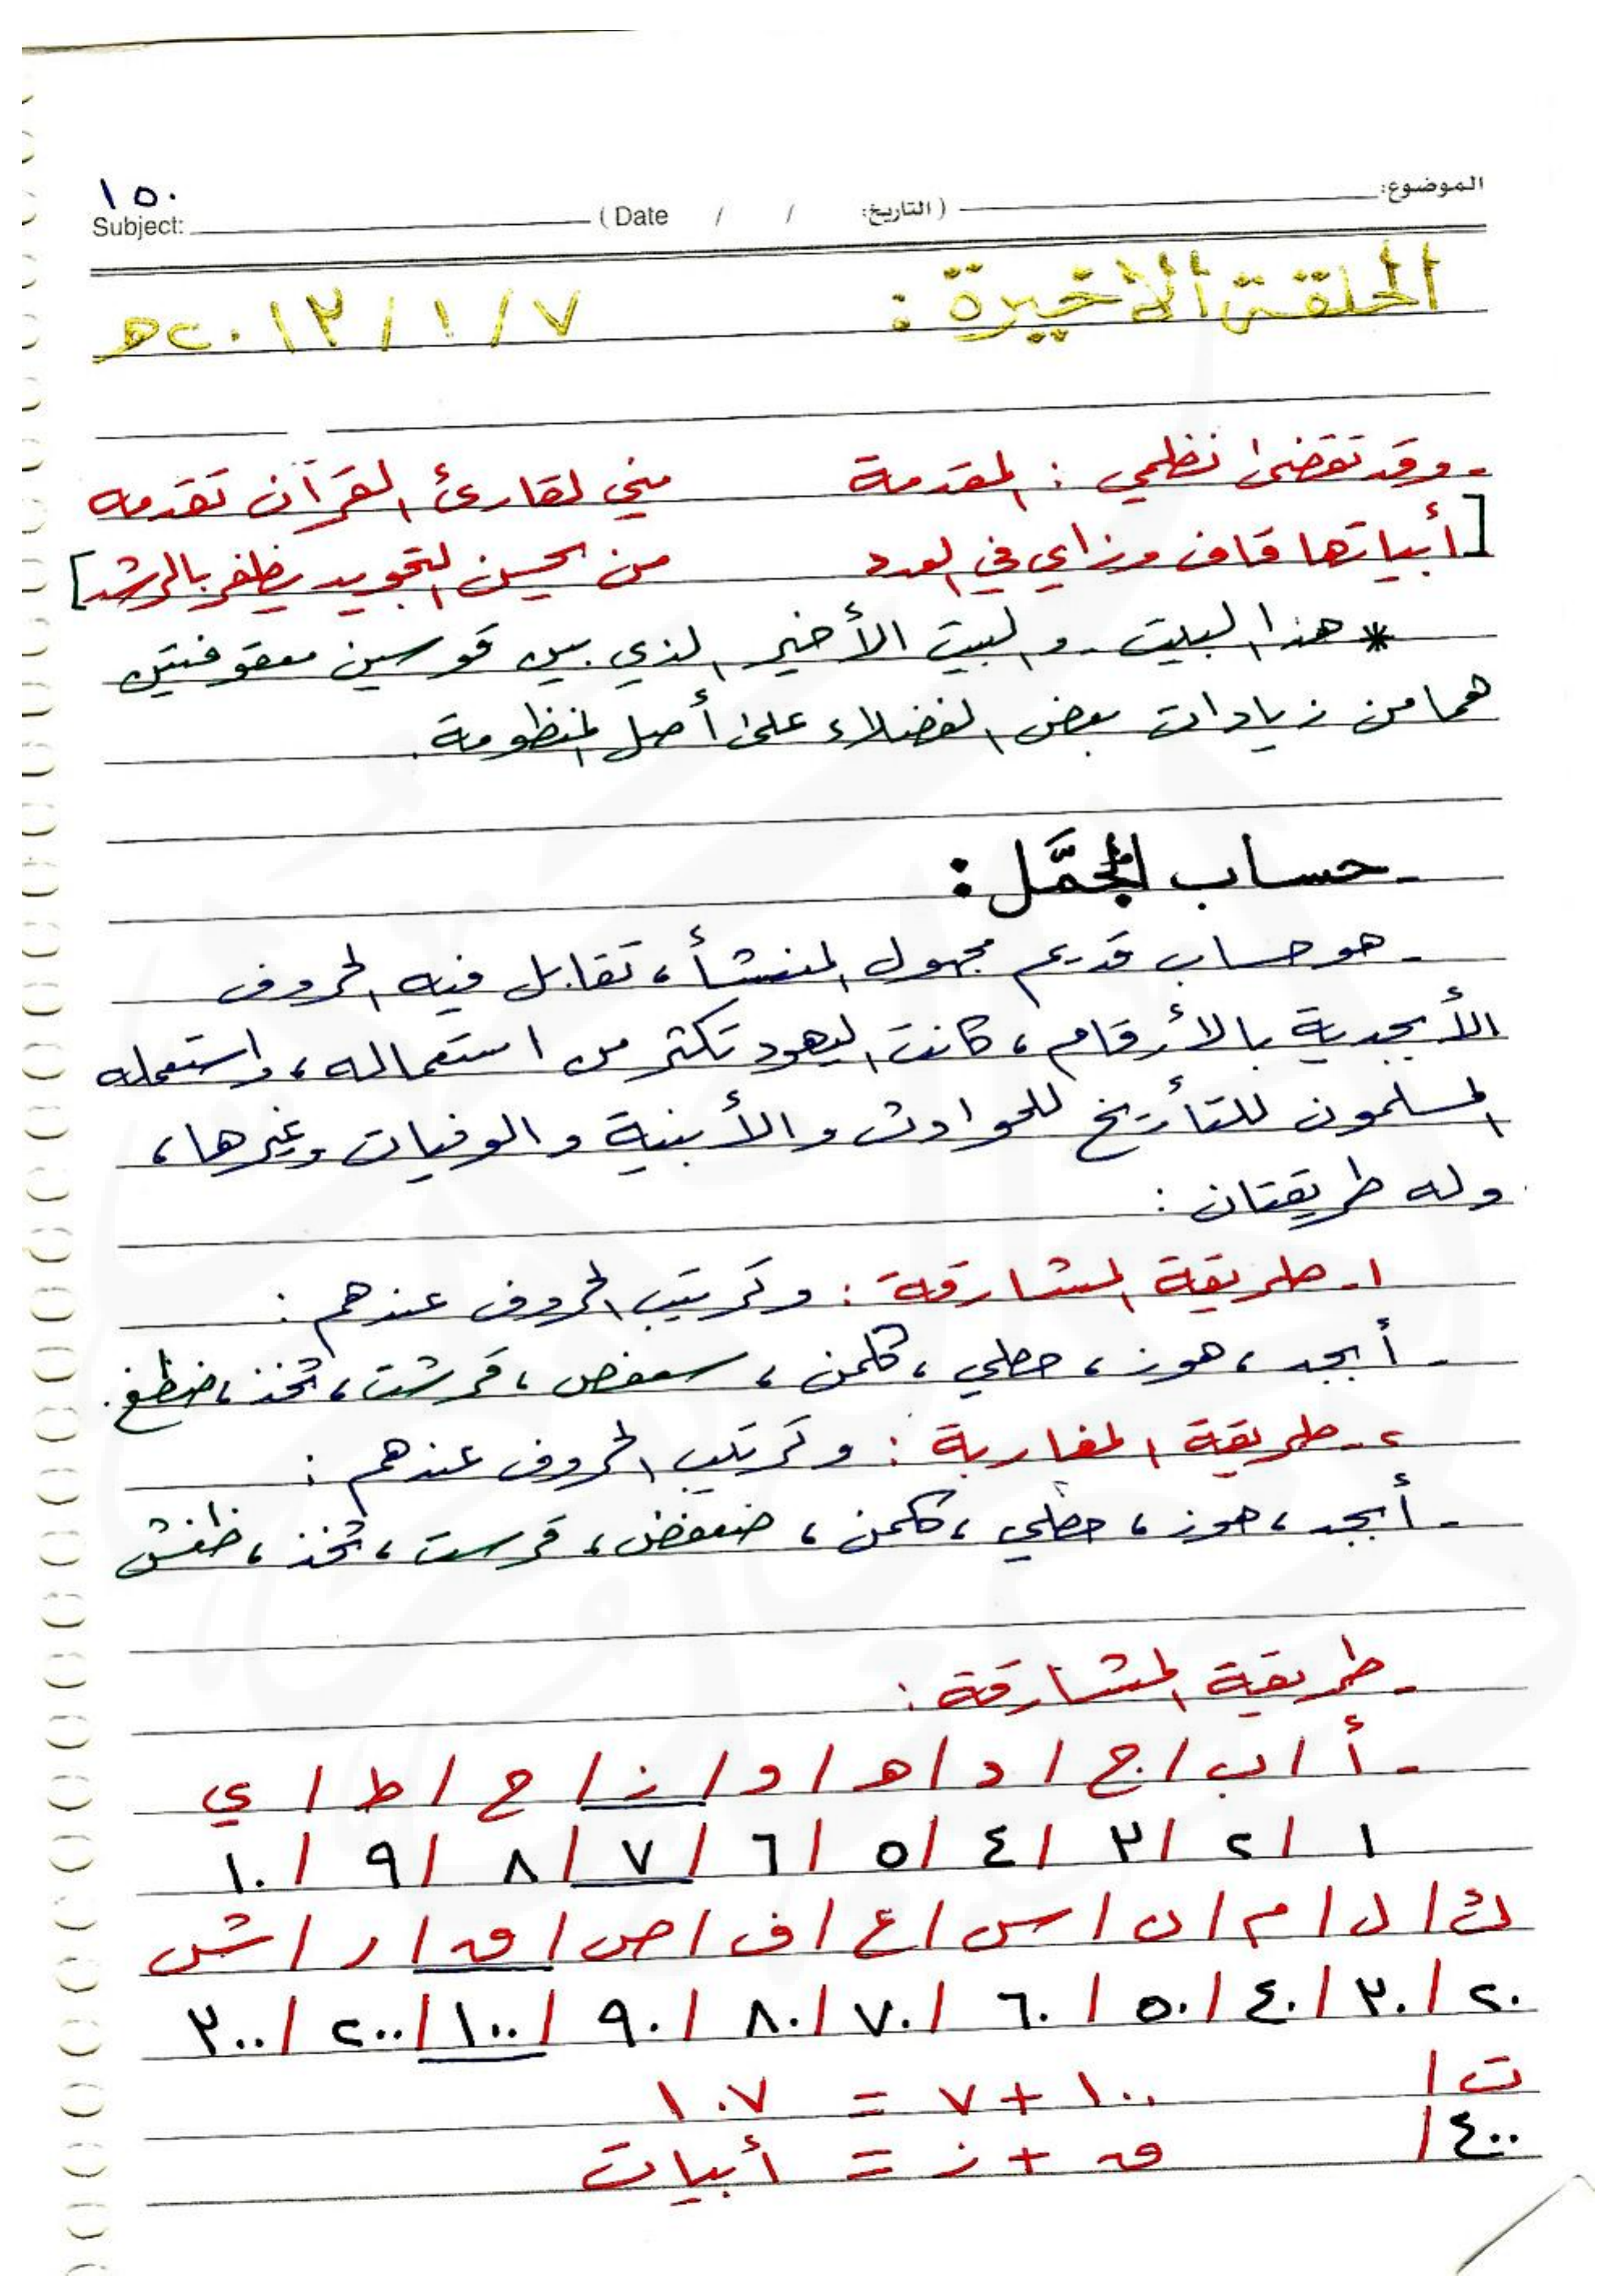 ١٥٠
الموضوع: (التاريخ: / / Date) Subject:
الحلقة الأخيرة : ٧ / ١ / ٢٠١٣ م
- وقد تقضى نظمي : المقدمة مني لقارئ القرآن تقدمه
[أبياتها قاف وزاي في العدد من يحسن التجويد يظفر بالرشد]
* هذا البيت - والبيت الأخير الذي بين قوسين معقوفتين
هما من زيادات بعض الفضلاء على أصل المنظومة.
- حساب الجُمَّل :
- هو حساب قديم مجهول المنشأ، تقابل فيه الحروف
الأبجدية بالأرقام، كانت اليهود تكثر من استعماله، واستعمله
المسلمون للتأريخ للحوادث والأبنية والوفيات وغيرها،
وله طريقتان :
١- طريقة المشارقة : وترتيب الحروف عندهم :
- أبجد، هوز، حطي، كلمن، سعفص، قرشت، ثخذ، ضظغ.
٢- طريقة المغاربة : وترتيب الحروف عندهم :
- أبجد، هوز، حطي، كلمن، صعفض، قرست، ثخذ، ظغش
- طريقة المشارقة :
- أ / ب / ج / د / ه / و / ز / ح / ط / ي
١ / ٢ / ٣ / ٤ / ٥ / ٦ / ٧ / ٨ / ٩ / ١٠
ك / ل / م / ن / س / ع / ف / ص / ق / ر / ش
٢٠ / ٣٠ / ٤٠ / ٥٠ / ٦٠ / ٧٠ / ٨٠ / ٩٠ / ١٠٠ / ٢٠٠ / ٣٠٠
ت / ١٠٠ + ٧ = ١٠٧
٤٠٠ / ق + ز = أبيات